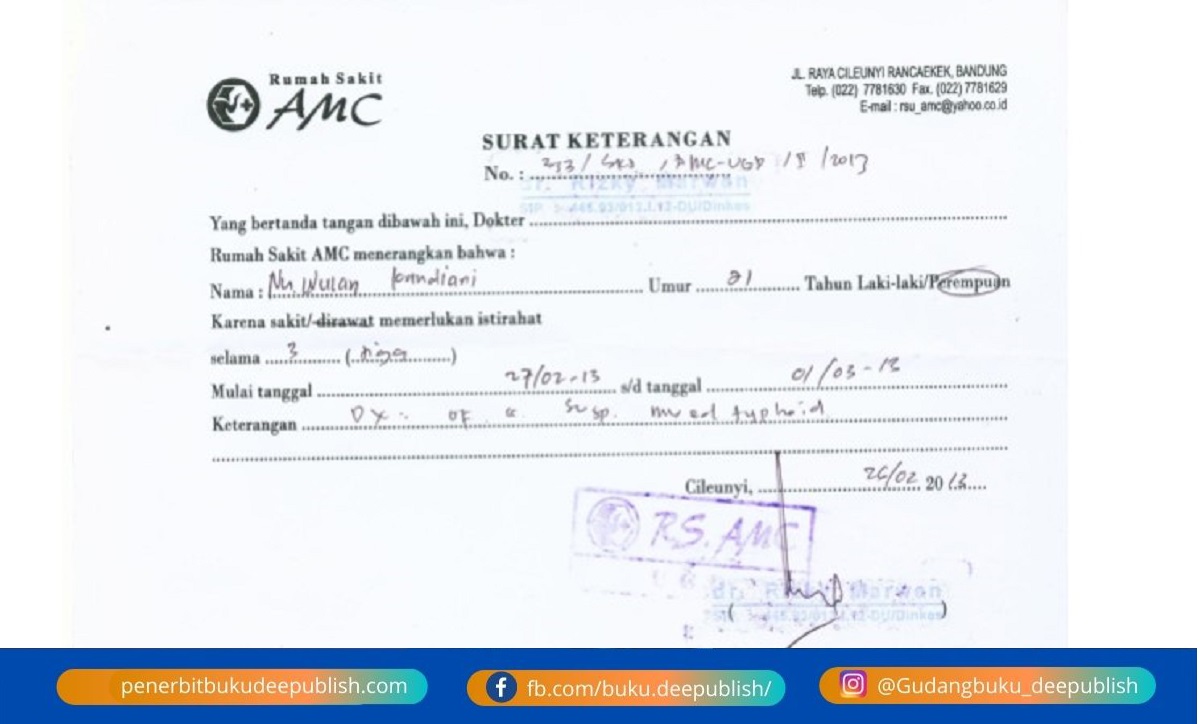 Rumah Sakit
AMC
JL. RAYA CILEUNYI RANCAEKEK, BANDUNG
Telp. (022) 7781630 Fax. (022) 7781629
E-mail : rsu_amc@yahoo.co.id
SURAT KETERANGAN
No. : 213/ SKD /AMC-UGD / II /2013
dr. Rizky Marwan
Yang bertanda tangan dibawah ini, Dokter
Rumah Sakit AMC menerangkan bahwa :
Nama : Wulan Umur 21 Tahun Laki-laki/Perempuan
Karena sakit/dirawat memerlukan istirahat
selama 3 (tiga)
Mulai tanggal 27/02-13 s/d tanggal 01/03-13
Keterangan DX : susp. typhoid
Cileunyi, 26/02 2013
RS. AMC
dr. Rizky Marwan
penerbitbukudeepublish.com
fb.com/buku.deepublish/
@Gudangbuku_deepublish